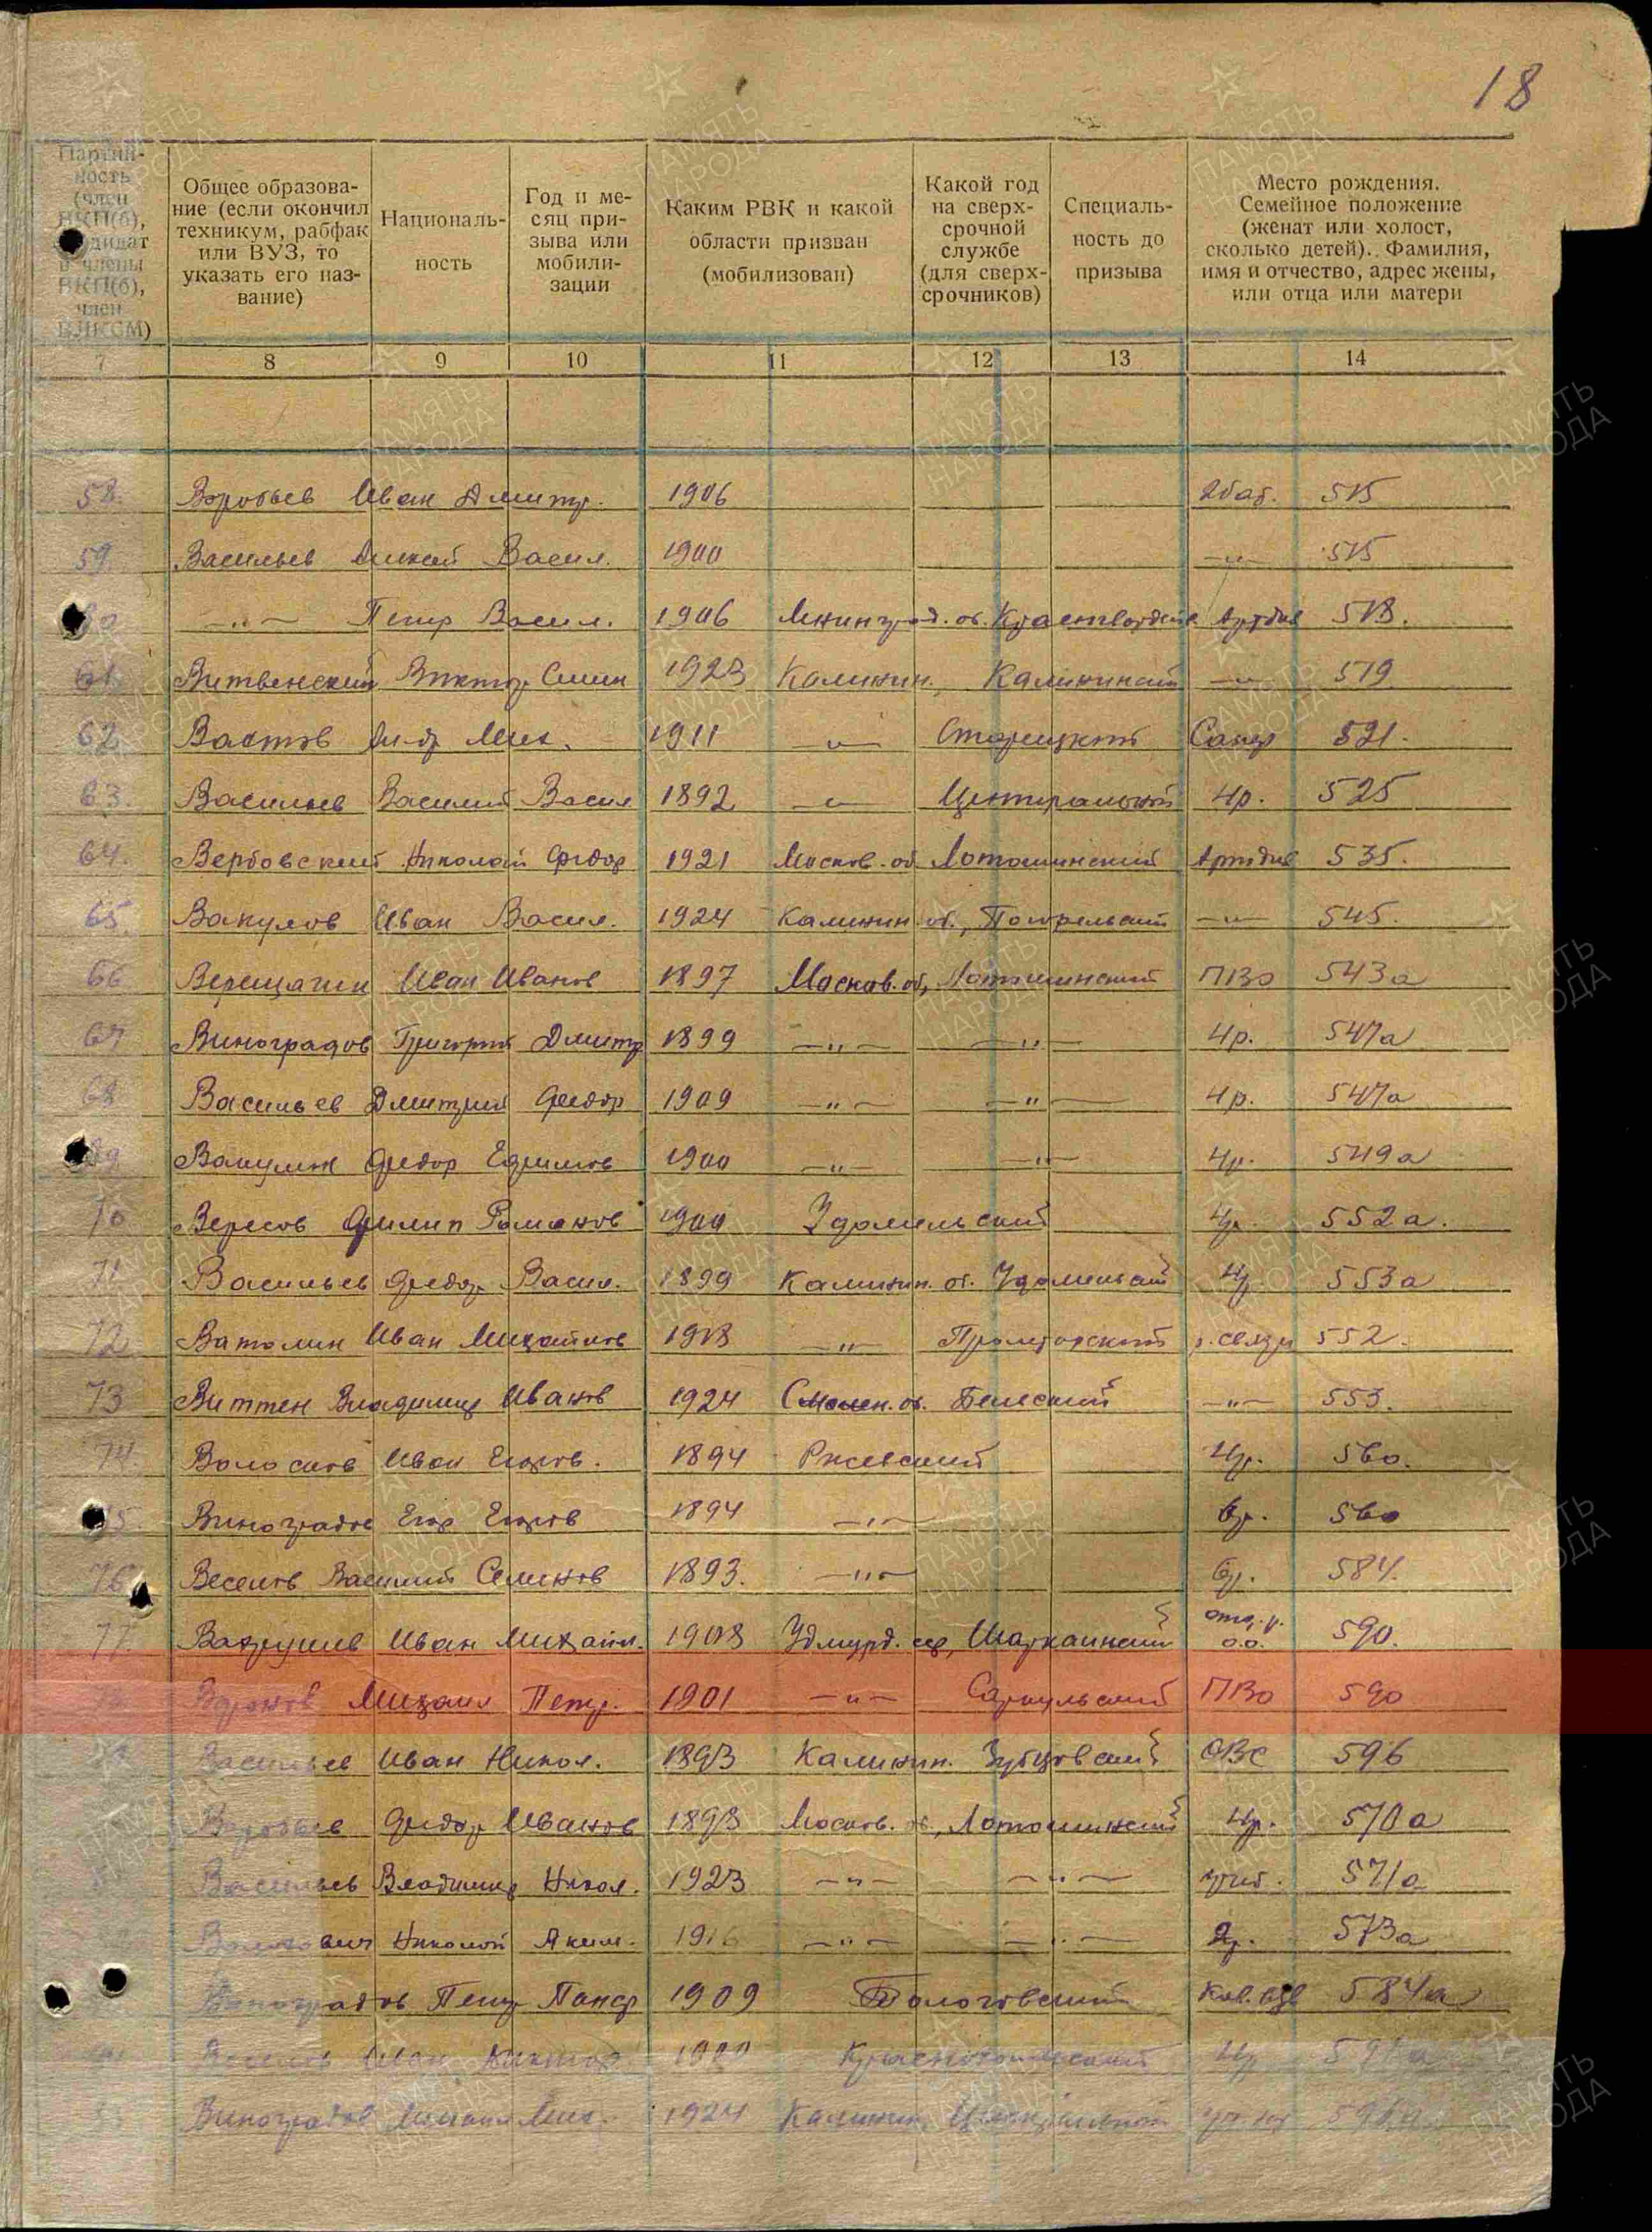 18
Партий-
ность
(член
ВКП(б),
кандидат
в члены
ВКП(б),
член
ВЛКСМ)
Общее образова-
ние (если окончил
техникум, рабфак
или ВУЗ, то
указать его наз-
вание)
Националь-
ность
Год и ме-
сяц при-
зыва или
мобили-
зации
Каким РВК и какой
области призван
(мобилизован)
Какой год
на сверх-
срочной
службе
(для сверх-
срочников)
Специаль-
ность до
призыва
Место рождения.
Семейное положение
(женат или холост,
сколько детей). Фамилия,
имя и отчество, адрес жены,
или отца или матери
7 8 9 10 11 12 13 14
58. Воробьев Иван Дмитр. 1906 2 бат. 515
59. Васильев Васил. 1900 —„— 515
60 —„— Петр Васил. 1906 Ленинград. об. Артдив 518.
61. Витвенский Виктор Семен 1923 Калинин., Калининский —„— 519
62 Мих. 1911 —„— Старицкий Сапер 521.
63. Васильев Василий Васил 1892 —„— Центральный 4р. 525
64. Вербовский Николай Федор 1921 Москов. об Лотошинский Артдив 535.
65. Вакулов Иван Васил. 1924 Калинин. об., Погорельский —„— 545.
66 Верещагин Иван Иванов 1897 Москов. об, Лотошинский ПВО 543а
67 Виноградов Григорий Дмитр 1899 —„— —„— 4р. 547а
68 Васильев Дмитрий Федор 1909 —„— —„— 4р. 547а
69 Вакулин Федор Ефимов 1900 —„— —„— 4р. 549а
70 Вересов Филип Романов 1900 Удомельский 4р. 552а.
71 Васильев Федор Васил. 1899 Калинин. об. Удомельский 4р 553а
72 Ватолин Иван Михайлов 1918 —„— р. связи 552.
73 Виттен Владимир Иванов 1924 Смолен. об. Бельский —„— 553.
74. Волосков Иван Егоров. 1894 Ржевский 4р. 560.
75. Виноградов Егор Егоров 1894 —„— 6р. 560
76 Веселов Василий Семенов 1893. —„— 6р. 584.
77. Вахрушев Иван Михайл. 1908 Удмурд. сср, Шарканский о.о. 590.
78 Михаил Петр. 1901 —„— Сарапульский ПВО 590
Васильев Иван Никол. 1893 Калинин. Зубцовский ОВС 596
Воробьев Федор Иванов 1893 Москов. об., Лотошинский 4р. 570а
Васильев Владимир Никол. 1923 —„— —„— 571а
Николай Аким. 1916 —„— —„— 2р. 573а
Виноградов Петр 1909 Бологовский Ком. взв 584а
Веселов Иван Виктор. Краснохолмский 4р
Виноградов Михаил Мих. 1924 Калинин. Центральный
ПАМЯТЬ
НАРОДА